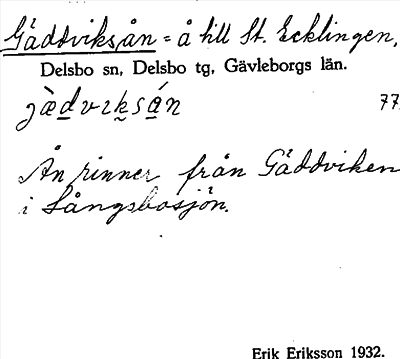 Gäddviksån = å till St. Ecklingen,
Delsbo sn, Delsbo tg, Gävleborgs län.
jæ̀dvıksán 77
Ån rinner från Gäddviken
i Långsbosjön.
Erik Eriksson 1932.